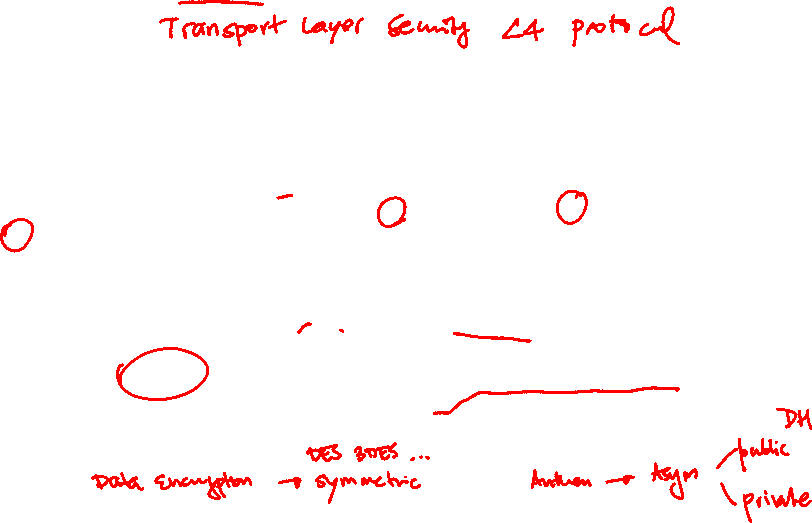 Transport Layer Security L4 protocol
DH
DES 3DES ...
public
Data Encryption → symmetric
Authen → Asym
private